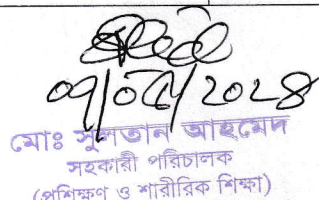 ০৭/০৫/২০২৪
মোঃ সুলতান আহমেদ
সহকারী পরিচালক
(প্রশিক্ষণ ও শারীরিক শিক্ষা)